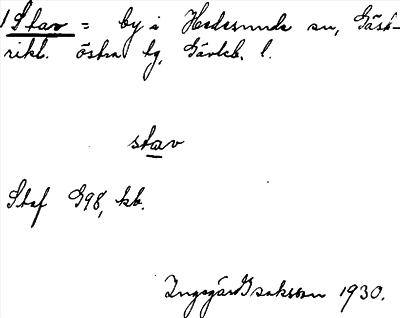 1 Stav = by i Hedesunda sn, Gäst-
rikl. östra tg, Gävleb. l.
stav
Staf 998, kb.
Ingegärd Isaksson 1930.